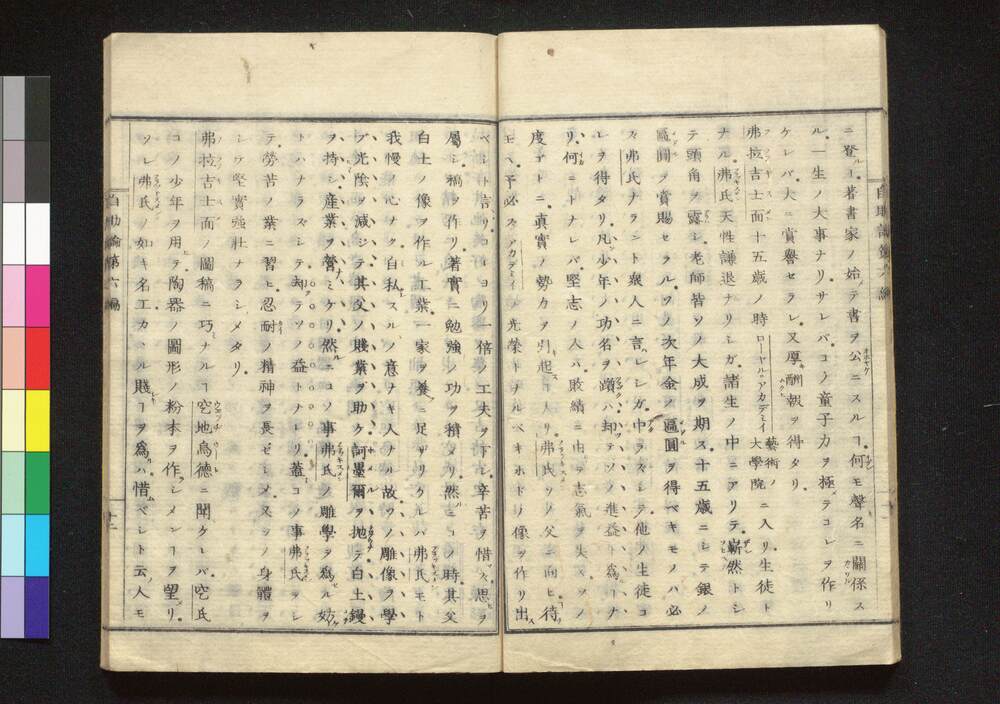 ニ登ルー著書家ノ始メテ書ヲ公ニスルヿ何モ聲名ニ關係ス
ル一生ノ大事ナリサレバコノ童子力ヲ極メテコレヲ作リ
ケレバ大ニ賞譽セラレ又厚キ酬報ヲ得タリ
弗拉吉士面十五歳ノ時ローヤル＝アカデミイ藝術ノ大學院ニ入リ生徒ト
ナル弗氏天性謙退ナリシガ諸生ノ中ニアリテ嶄然トシ
テ頭角ヲ露シ老師皆ソノ大成ヲ期ス十五歳ニシテ銀ノ
區圓ヲ賞賜セラルソノ次年金ノ區圓ヲ得ベキモノハ必
ズ弗氏ナラント衆人ニ言ハレシガ中ラズシテ他ノ生徒コ
レヲ得タリ凡ソ少年ノ功名ヲ躓ハ却テソノ進益トハナ
リ何ニトナレバ堅志ノ人ハ敗績ニ由テ志氣ヲ失ハズソノ
度ゴトニ眞實ノ勢力ヲ引起スコナリ弗氏ソノ父ニ向ヒ待
モヘ予必ズアカデミイノ光榮トナルベキホドノ像ヲ作リ出ス
ベシト言リコレヨリ一倍ノ工夫ヲ下シ辛苦ヲ惜マズ思ヲ
屬シ稿ヲ作リ著實ニ勉強ノ功ヲ積メリ然ルニコノ時其父
白土ノ像ヲ作ル工業一家ヲ養フニ足ザリケレバ弗氏モト
我慢ノ心ナク自私スルノ意ナキ人ナル故ソノ雕像ヲ學
ブ光陰ヲ減シテ其父ノ賤業ヲ助ケ訶墨爾ヲ抛テ白土鏝
ヲ持シ産業ヲ營ミケリ然ルニコノ事弗氏ノ雕學ヲ爲ル妨
トハナラズシテ却テソノ益トナレリ蓋コノ事弗氏ヲシ
テ勞苦ノ業ニ習ヒ忍耐ノ精神ヲ長ゼシメ又ソノ身體ヲ
シテ堅實強壯ナラシメタリ
弗拉吉士面ノ圖稿ニ巧ミナルヿ空地烏德ニ聞ケレバ空氏
コノ少年ヲ用テ陶器ノ圖形ノ粉本ヲ作ラシメンヿヲ望メリ
ソレ弗氏ノ如キ名工カヽル賤キヿヲ爲ハ惜ムベシト云ノ人モ
自助論第六編